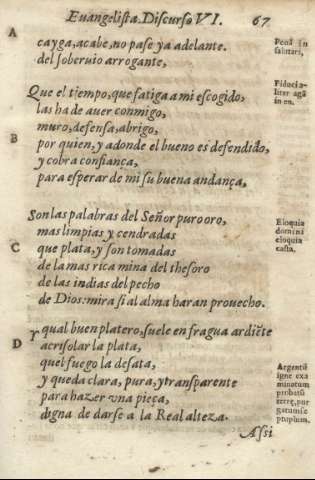 Euangelista. Discurso VI. 67.
A
cayga, acabe, no pase ya adelante.
del soberuio arrogante,
Ponã in
salutari,
Que el tiempo, que fatiga a mi escogido,
las ha de auer conmigo,
muro, defensa, abrigo,
por quien, y adonde el bueno es defendido,
y cobra confiança,
para esperar de mi su buena andança,
Fiducia-
liter agã
in eo.
B
Son las palabras del Señor puro oro,
mas limpias y cendradas
que plata, y son tomadas
de la mas rica mina del thesoro
de las indias del pecho
de Dios: mira si al alma haran prouecho.
Eloquia
domini
eloquia
casta.
C
Y qual buen platero, suele en fragua ardiẽte
acrisolar la plata,
quel fuego la desata,
y queda clara, pura, y transparente
para hazer vna pieça,
digna de darse a la Real alteza.
D
Argentũ
igne exa
minatum
probatũ
terrę, pur
gatum se
ptuplum.
Assi